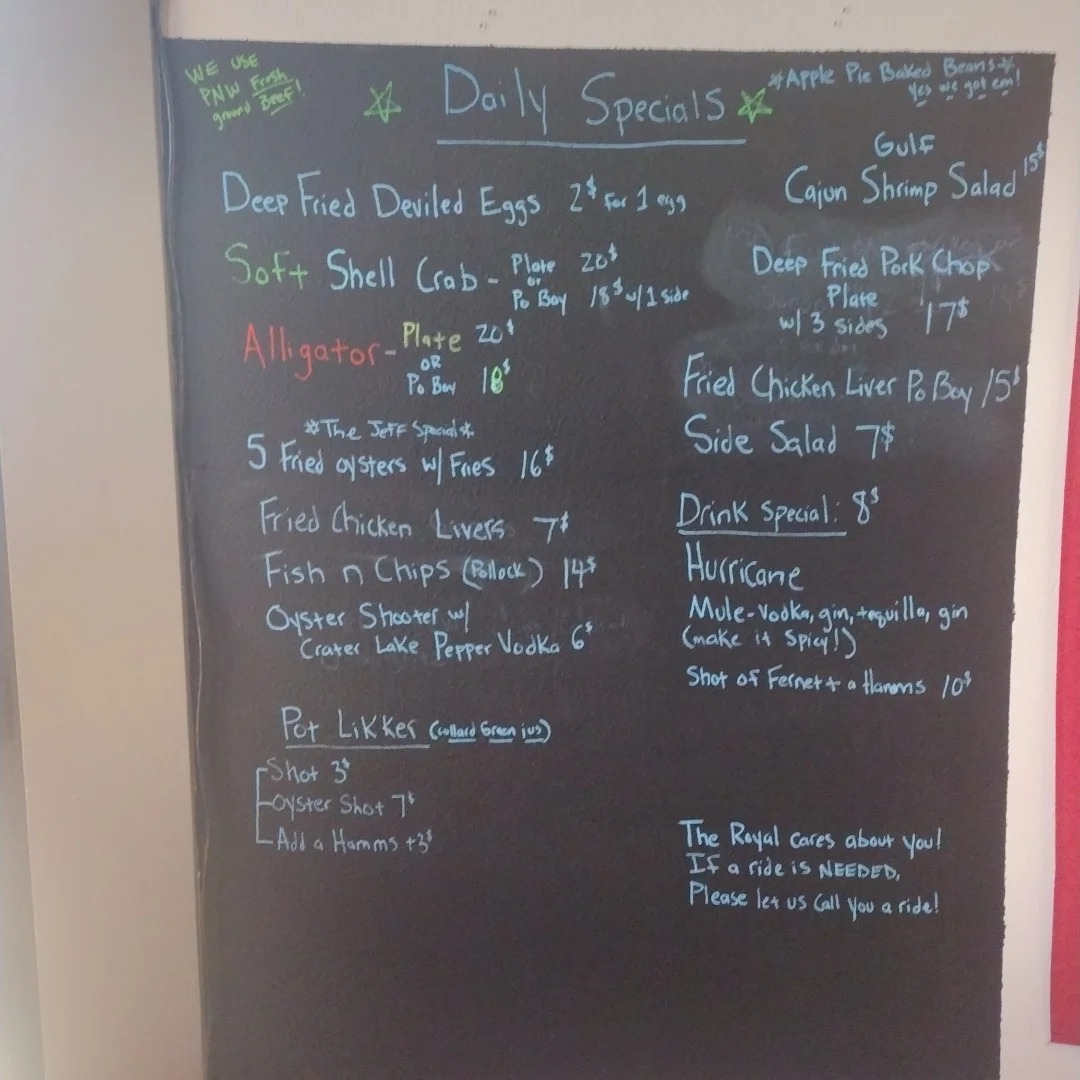 WE USE
PNW Fresh
ground Beef!
Daily Specials
*Apple Pie Baked Beans*
yes we got em!
Deep Fried Deviled Eggs 2$ for 1 egg
Soft Shell Crab - Plate 20$
or
Po Boy 18$ w/1 side
Alligator - Plate 20$
OR
Po Boy 18$
*The Jeff Special*
5 Fried oysters w/ Fries 16$
Fried Chicken Livers 7$
Fish n Chips (Pollock) 14$
Oyster Shooter w/
Crater Lake Pepper Vodka 6$
Pot Likker (collard Green jus)
Shot 3$
Oyster Shot 7$
Add a Hamms +3$
Gulf
Cajun Shrimp Salad 15$
Deep Fried Pork Chop
Plate
w/ 3 sides 17$
Fried Chicken Liver Po Boy 15$
Side Salad 7$
Drink Special: 8$
Hurricane
Mule-Vodka, gin, tequilla, gin
(make it spicy!)
Shot of Fernet + a Hamms 10$
The Royal cares about you!
If a ride is NEEDED,
Please let us call you a ride!